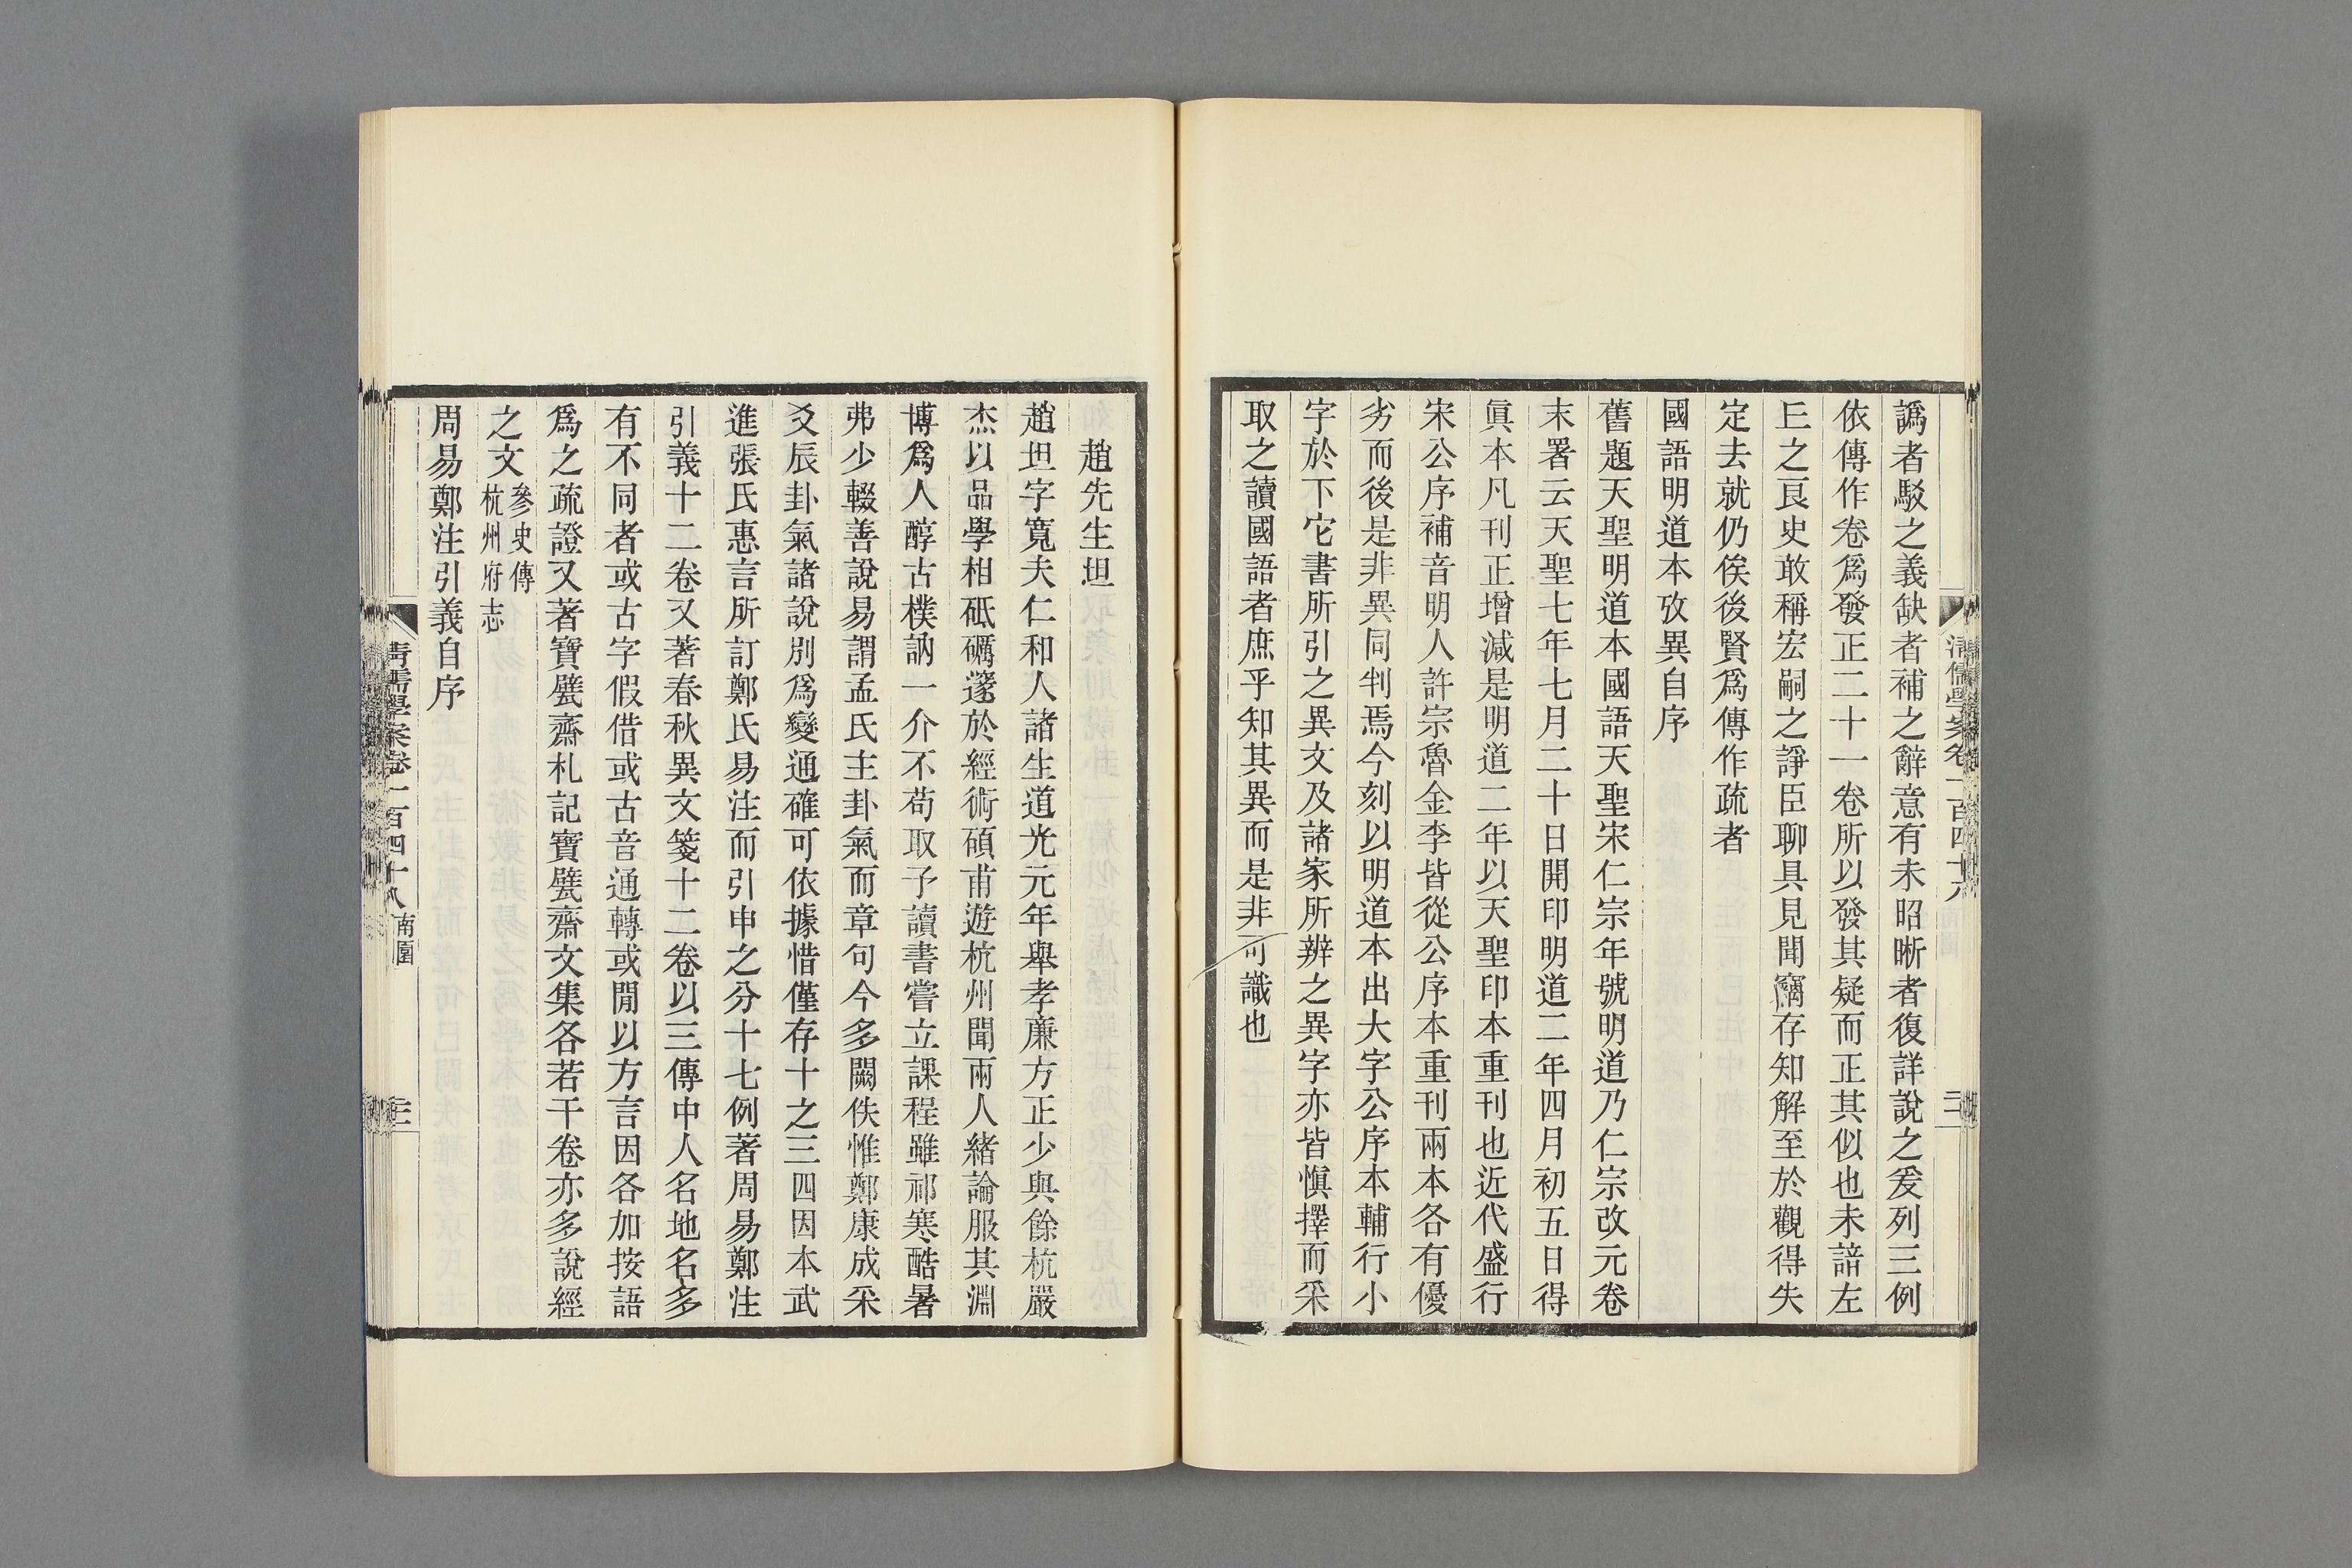 譌者駁之義缺者補之辭意有未昭晰者復詳說之爰列三例
依傳作卷爲發正二十一卷所以發其疑而正其似也未諳左
𠀐之良史敢稱宏嗣之諍臣聊具見聞竊存知解至於觀得失
定去就仍俟後賢爲傳作疏者
國語明道本攷異自序
舊題天聖明道本國語天聖宋仁宗年號明道乃仁宗改元卷
末署云天聖七年七月二十日開印明道二年四月初五日得
眞本凡刊正增減是明道二年以天聖印本重刊也近代盛行
宋公序補音明人許宗魯金李皆從公序本重刊兩本各有優
劣而後是非異同判焉今刻以明道本出大字公序本輔行小
字於下它書所引之異文及諸家所辨之異字亦皆愼擇而采
取之讀國語者庶乎知其異而是非可識也
趙先生坦
趙坦字寬夫仁和人諸生道光元年舉孝廉方正少與餘杭嚴
杰以品學相砥礪邃於經術碩甫遊杭州聞兩人緒論服其淵
博爲人醇古樸訥一介不苟取予讀書嘗立課程雖祁寒酷暑
弗少輟善說易謂孟氏主卦氣而章句今多闕佚惟鄭康成采
爻辰卦氣諸說別爲變通確可依據惜僅存十之三四因本武
進張氏惠言所訂鄭氏易注而引申之分十七例著周易鄭注
引義十二卷又著春秋異文箋十二卷以三傳中人名地名多
有不同者或古字假借或古音通轉或閒以方言因各加按語
爲之疏證又著寶甓齋札記寶甓齋文集各若干卷亦多說經
之文參史傳
杭州府志
周易鄭注引義自序
清儒學案卷一百四十八 南園